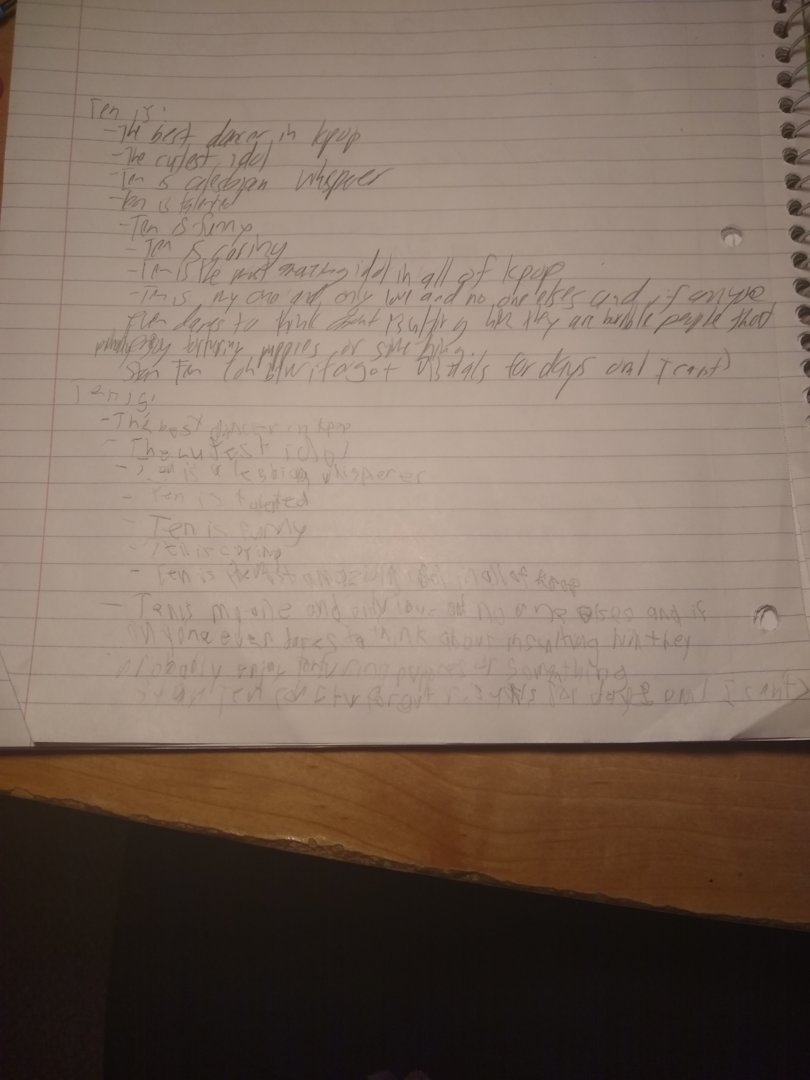 Ten is:
-The best dancer in kpop
-The cutest idol
-Ten is a lesbian whisperer
-Ten is talented
-Ten is funny
-Ten is caring
-Ten is the most amazing idol in all of kpop
-Ten is my one and only love and no one elses and if anyone
even dares to think about insulting him they are horrible people that
probably enjoy torturing puppies or something.
Stan Ten (oh btw i forgot visuals for days and I cant)
Ten is:
-The best dancer in kpop
- The cutest idol
- Ten is a lesbian whisperer
- Ten is talented
- Ten is funny
- Ten is caring
- Ten is the most amazing idol in all of kpop
- Ten is my one and only love and no one elses and if
anyone even dares to think about insulting him they
probably enjoy torturing puppies or something
Ten (oh btw forgot visuals for days and I cant)